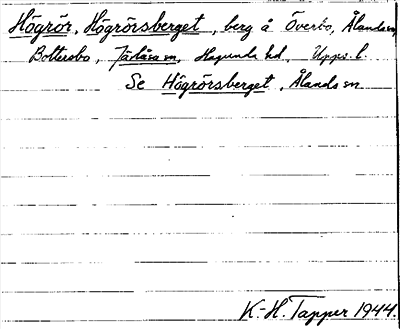 Högrör, Högrörsberget, berg å Överbo, Ålands sn
Bottersbo, Järlåsa sn, Hagunda hd, Upps. l.
Se Högrörsberget, Ålands sn
K.-H. Tapper 1944.